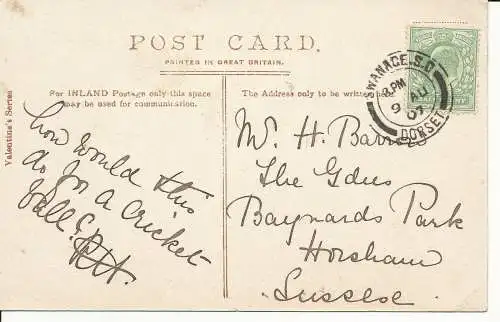 POST CARD.
PRINTED IN GREAT BRITAIN.
For INLAND Postage only this space
may be used for communication.
The Address only to be written here
Valentine's Series
SWANAGE. S.O
8 PM
9 AU
07
DORSET
How would this
do for a Cricket
ball?
W. H.
The Gdns
Baynards Park
Horsham
Sussex